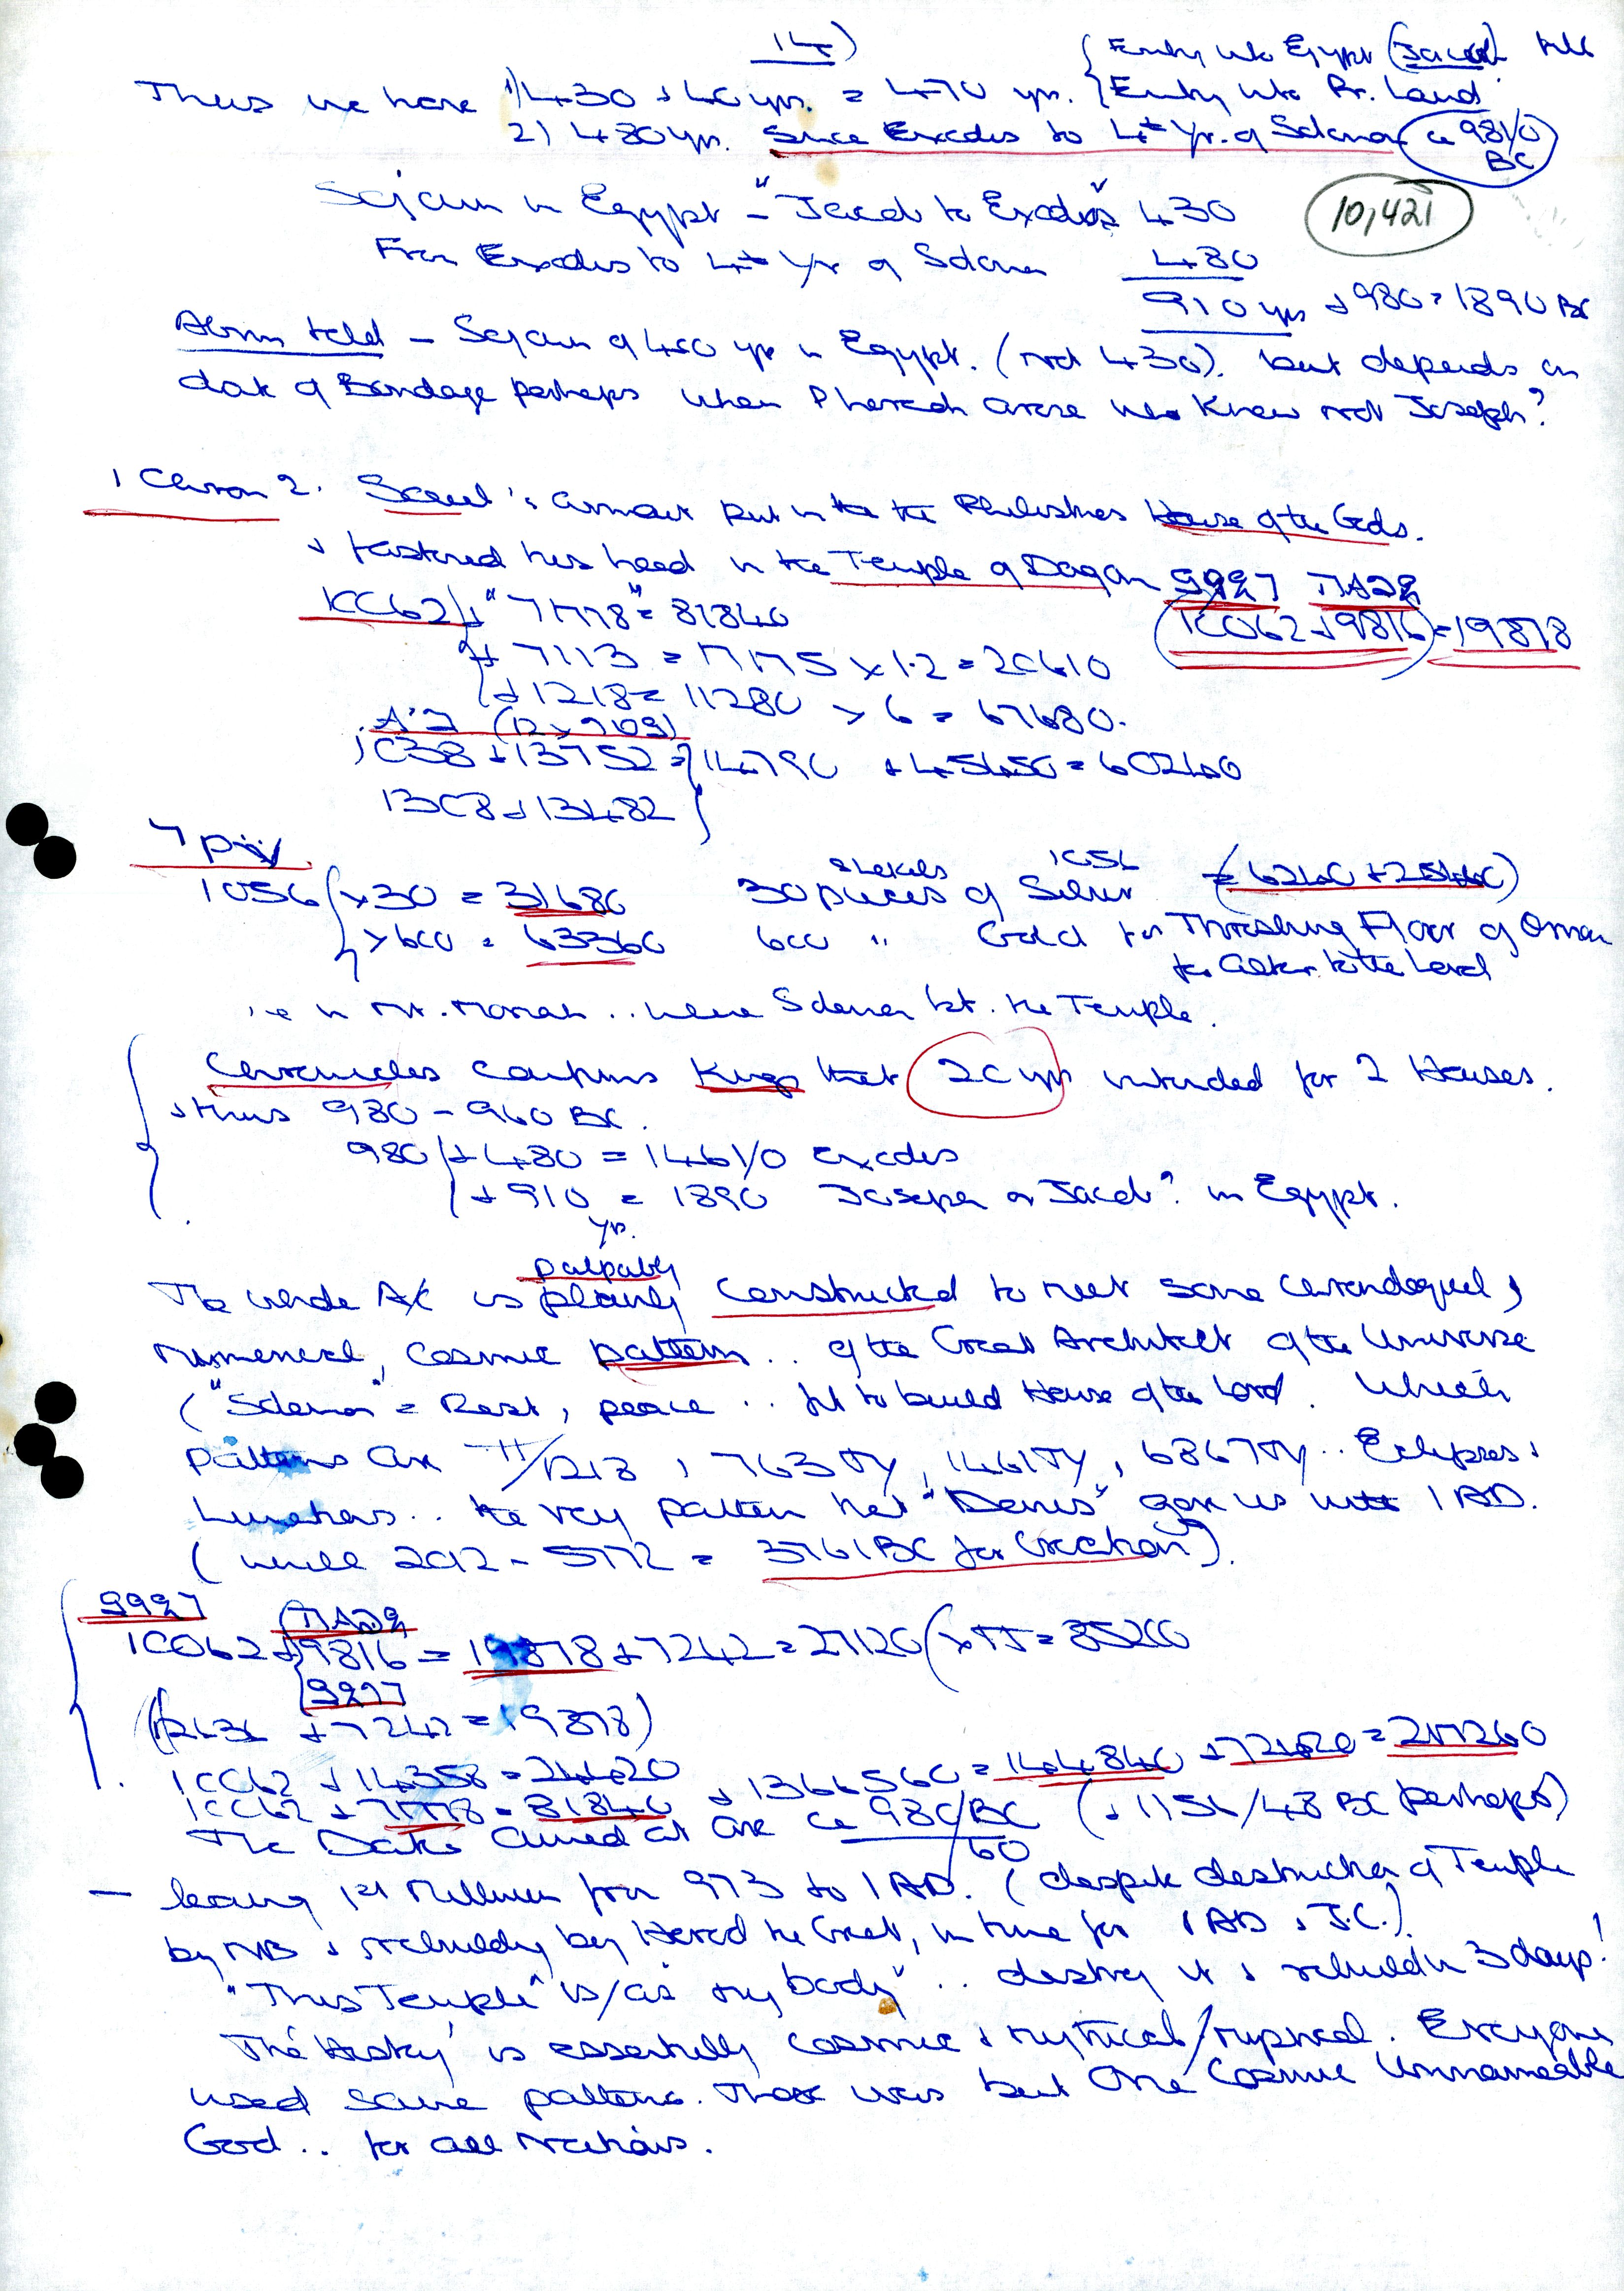 14)
Thus we have 1) 430 + 40 yrs. = 470 yrs. { Entry into Egypt (Jacob) till
{ Entry into Pr. Land
2) 480 yrs. Since Exodus to 4th Yr. of Solomon ca 981/0 BC
10,421
Sojourn in Egypt – "Jacob to Exodus" 430
From Exodus to 4th Yr of Solomon 480
910 yrs + 980 = 1890 BC
Abram told – Sojourn of 400 yrs in Egypt. (not 430). but depends on
date of Bondage perhaps when Pharaoh arose who Knew not Joseph?
1 Chron 2. Saul's armour put in the Philistines House of the Gods.
+ fastened his head in the Temple of Dagon
(10062 + 9816) = 19878
10062 + "71778" = 81840
+ 7113 = 17175 x 1.2 = 20610
+ 1218 = 11280 x 6 = 67680.
1038 + 13752 = 14790 + 45450 = 60240
1308 + 13482
1056 x 30 = 31680 30 pieces shekels of Silver 1056 (= 6240 + 25440)
x 600 = 63360 600 " Gold for Threshing Floor of Ornan
for altar to the Lord
i.e in Mt. Moriah .. where Solomon blt. the Temple.
Chronicles confirms Kings that 20 yrs intended for 2 Houses.
+ thus 980 – 960 BC.
980 + 480 = 1461/0 exodus
+ 910 = 1890 Joseph or Jacob? in Egypt.
yrs.
palpably
The whole A/C is plainly constructed to meet some chronological,
numerical, cosmic pattern .. of the Great Architect of the Universe
("Solomon" = Rest, peace .. fit to build House of the Lord. Which
patterns are π/1218, 763 TY, 1461 TY, 6867 TY .. Eclipses +
Lunations .. the very pattern that "Denis" gave us with 1 AD.
(while 2012 – 5772 = 3761 BC for Creation).
10062 + 9816 = 19878 + 7242 = 27120 (x π = 85200
(12636 + 7242 = 19878)
10062 + 14358 = 24420
10062 + 71778 = 81840 + 1366560 = 144840 + 72420 = 217260
The Dates aimed at are ca 980/60 BC (+ 1156/48 BC perhaps)
— leaving 1st Millenn from 973 to 1 AD. (despite destruction of Temple
by NB + rebuilding by Herod the Great, in time for 1 AD + J.C.).
"This Temple" is/as my body" .. destroy it + rebuild in 3 days!
The 'History' is essentially cosmic + mythical/mystical. Everyone
used same patterns. There was but One Cosmic Unnameable
God .. for all Nations.